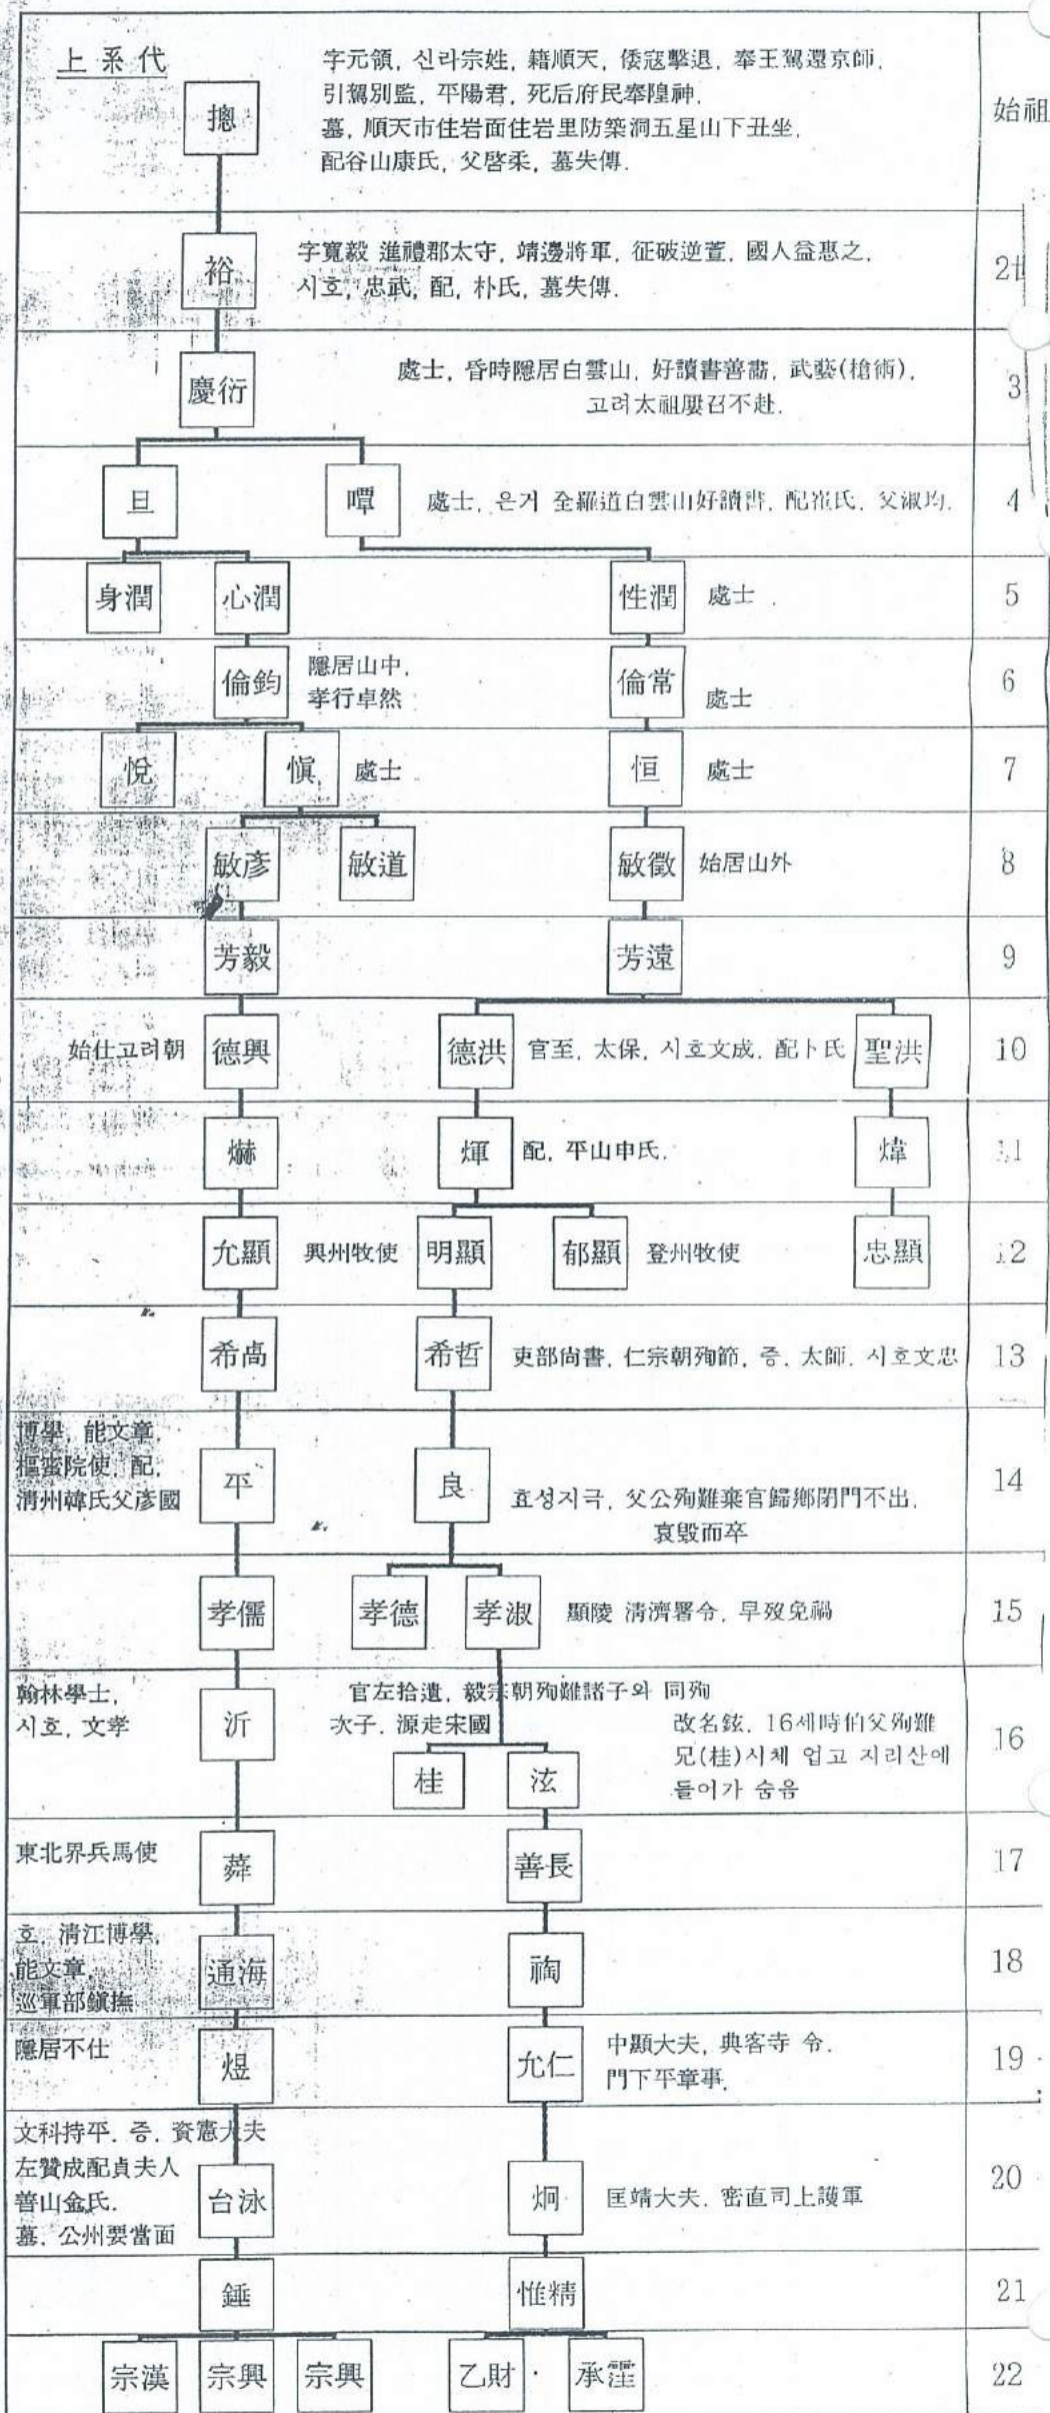 上系代
字元領, 신라宗姓, 籍順天, 倭寇擊退, 奉王駕還京師,
引駕別監, 平陽君, 死后府民奉隍神.
摠
始祖
墓, 順天市住岩面住岩里防築洞五星山下丑坐,
配谷山康氏, 父啓柔, 墓失傳.
字寬毅 進禮郡太守, 靖邊將軍, 征破逆萱, 國人益惠之,
裕
2世
시호, 忠武, 配, 朴氏, 墓失傳.
處士, 昏時隱居白雲山, 好讀書善書, 武藝(槍術),
慶衍
3
고려太祖屢召不赴.
旦
嘾
處士, 은거 全羅道白雲山好讀書, 配崔氏, 父淑均.
4
身潤
心潤
性潤
處士
5
倫鈞
隱居山中,
孝行卓然
倫常
處士
6
悅
愼
處士
恒
處士
7
敏彦
敏道
敏徵
始居山外
8
芳毅
芳遠
9
始仕고려朝
德興
德洪
官至, 太保, 시호文成, 配卜氏
聖洪
10
爀
煇
配, 平山申氏.
煒
11
允顯
興州牧使
明顯
郁顯
登州牧使
忠顯
12
希卨
希哲
吏部尙書, 仁宗朝殉節, 증, 太師, 시호文忠
13
博學, 能文章,
樞蜜院使, 配,
淸州韓氏父彦國
平
良
효성지극, 父公殉難棄官歸鄕閉門不出,
哀毁而卒
14
孝儒
孝德
孝淑
顯陵 淸濟署令, 早歿免禍
15
翰林學士,
시호, 文孝
沂
官左拾遺, 毅宗朝殉難諸子와 同殉
次子, 源走宋國
桂
泫
改名鉉, 16세時伯父殉難
兄(桂)시체 업고 지리산에
들어가 숨음
16
東北界兵馬使
蕣
善長
17
호, 淸江博學,
能文章,
巡軍部鎭撫
通海
裪
18
隱居不仕
煜
允仁
中顯大夫, 典客寺 令.
門下平章事.
19
文科持平. 증. 資憲大夫
左贊成配貞夫人
善山金氏.
墓. 公州要當面
台泳
炯
匡靖大夫. 密直司上護軍
20
錘
惟精
21
宗漢
宗興
宗興
乙財
承霔
22